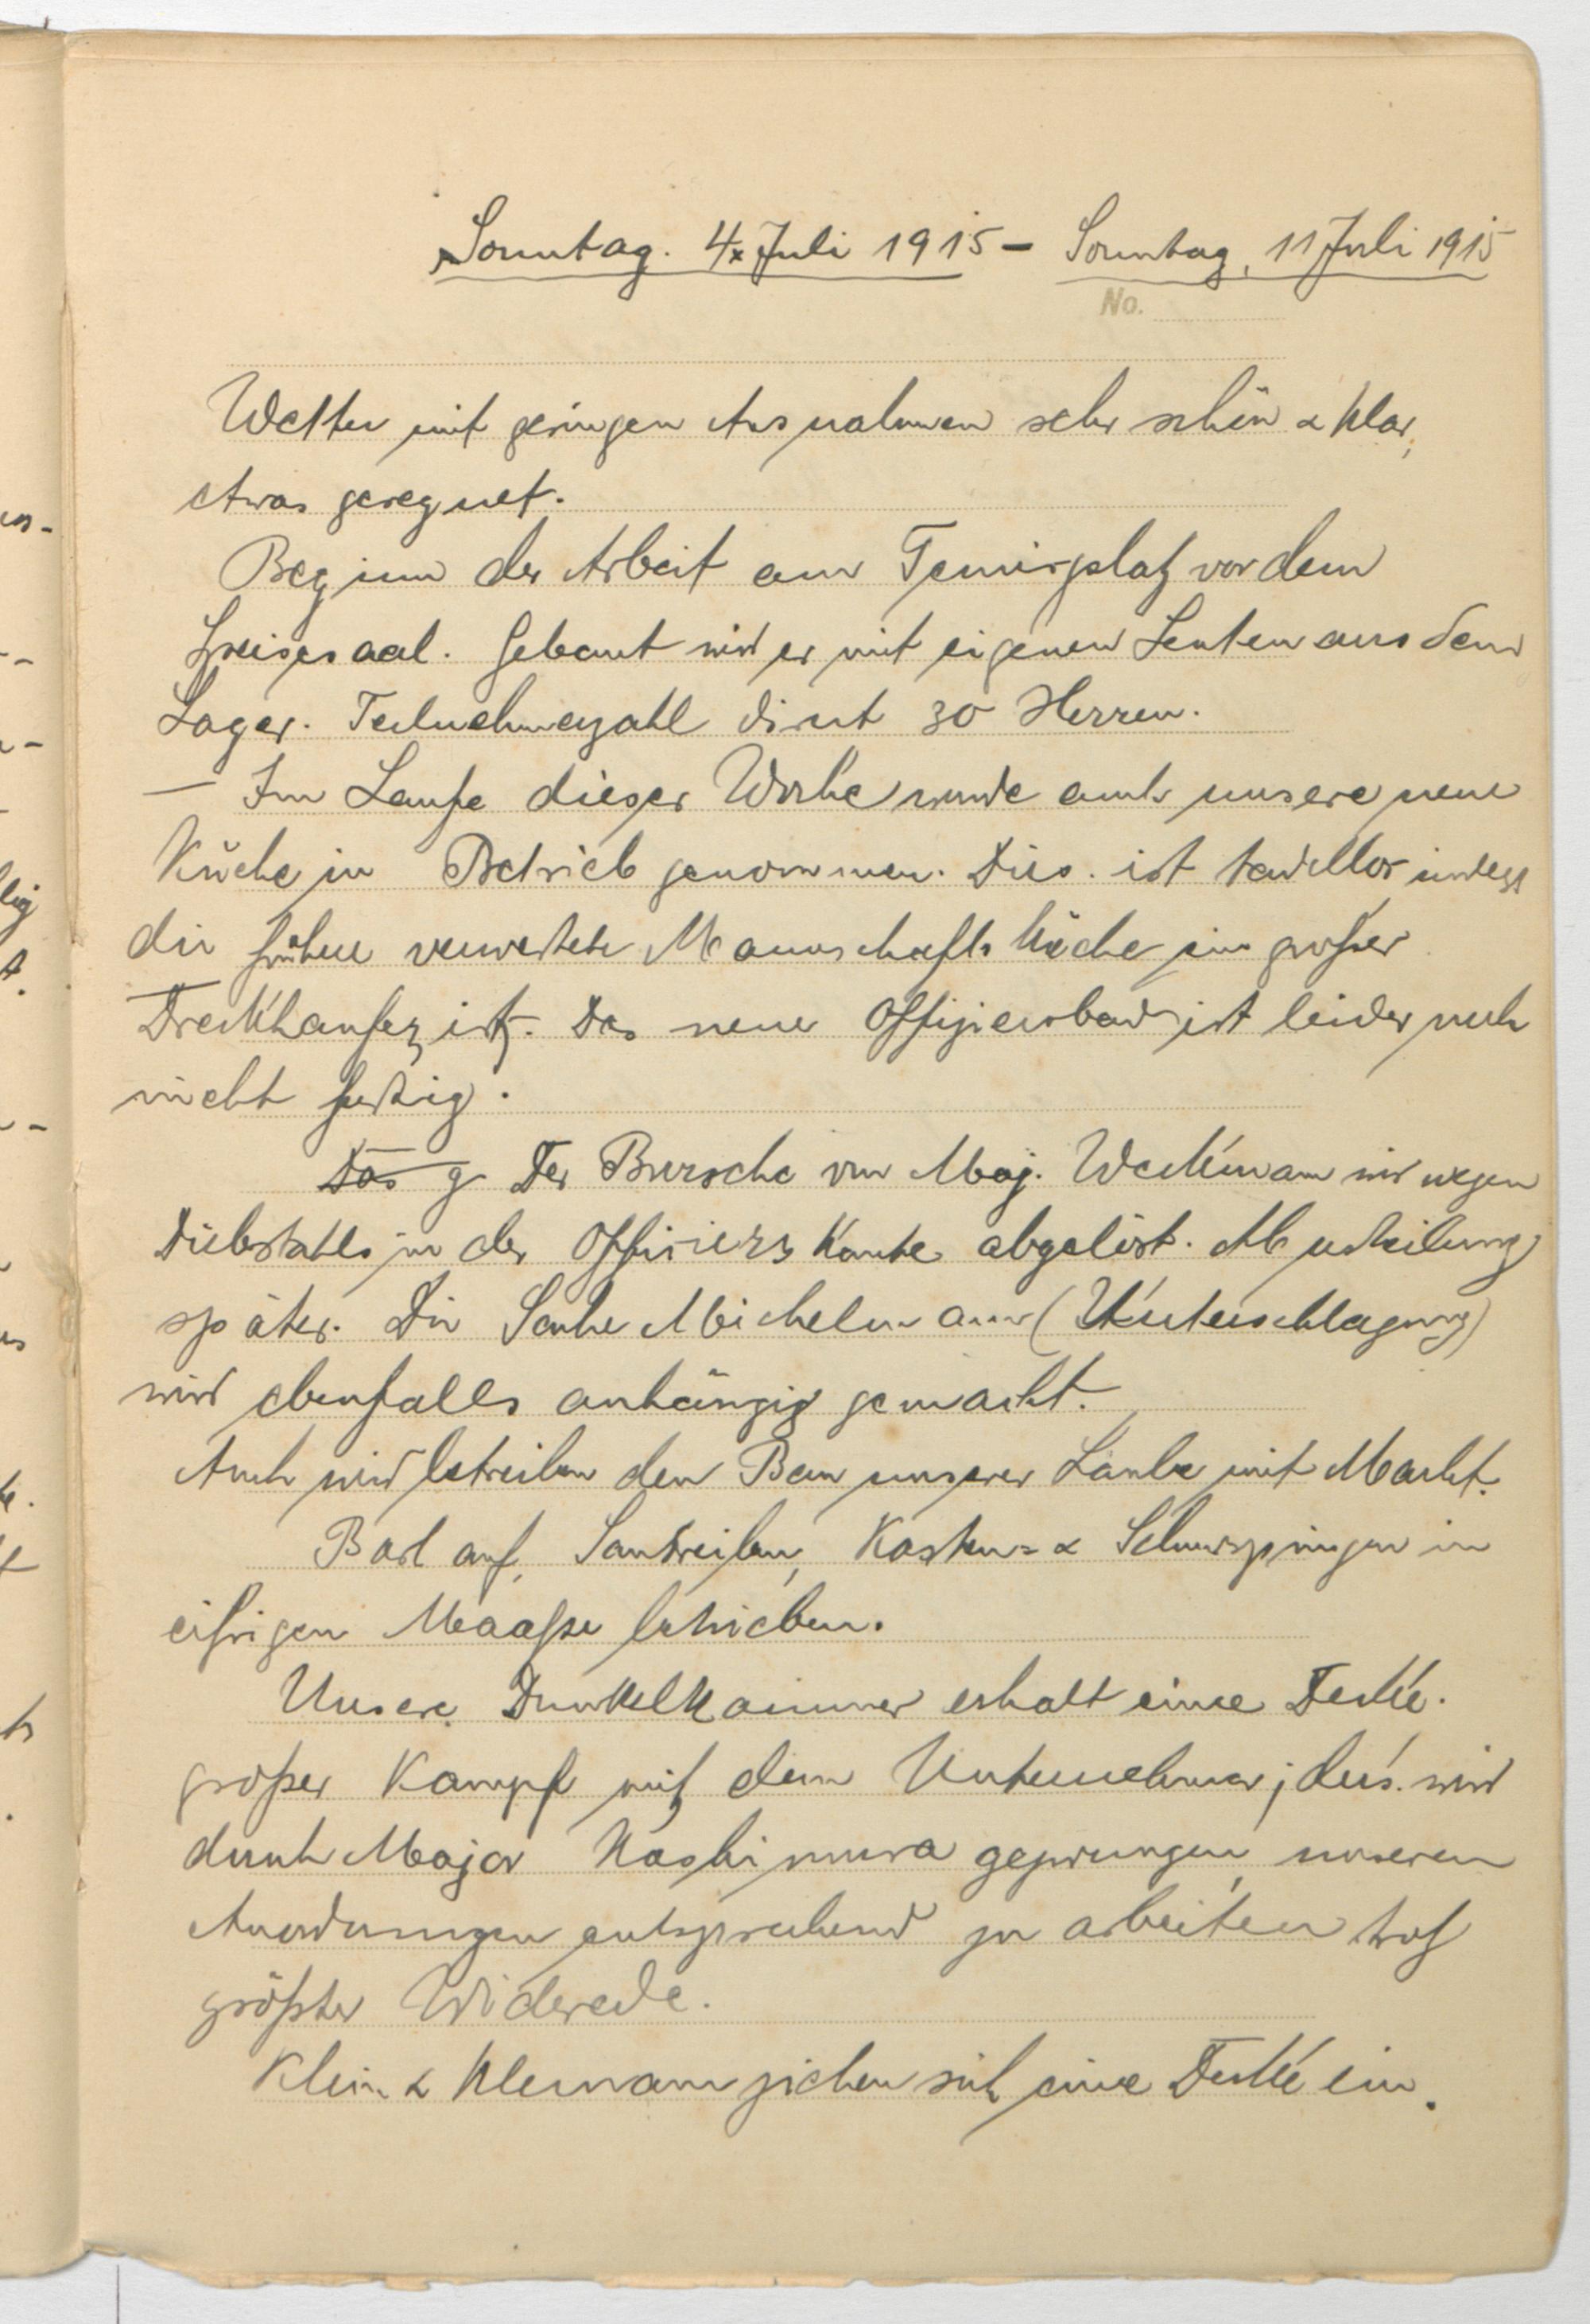 Sonntag. 4. Juli 1915 – Sonntag, 11 Juli 1915
No.
Wetter mit geringen Ausnahmen sehr schön & klar,
etwas geregnet.
Beginn der Arbeit am Tennisplatz vor dem
Speisesaal. Gebaut wird er mit eigenen Leuten aus dem
Lager. Teilnehmerzahl circa 30 Herren.
— Im Laufe dieser Woche wurde auch unsere neue
Küche in Betrieb genommen. Dies. ist tadellos indess
die frühere verwertete Mannschaftsküche ein großer
Dreckhaufen ist. Das neue Offiziersbad ist leider noch
nicht fertig.
Das g Der Bursche von Maj. Weckmann wird wegen
Diebstahls in der Offiziers Kantine abgelöst. Aburteilung
später. Die Sache Michelmann (Unterschlagung)
wird ebenfalls anhängig gemacht.
Auch wird betrieben den Bau unserer Laube mit Macht.
Bockl auf, Kasten- & Schnurspringen in
eifrigem Maaße betrieben.
Unsere Dunkelkammer erhält eine Decke.
großer Kampf mit dem Unternehmer; ders. wird
durch Major Kashimura gezwungen, unseren
Anordnungen entsprechend zu arbeiten trotz
größter Widerede.
Klein & Klemann ziehen sich eine Decke ein.